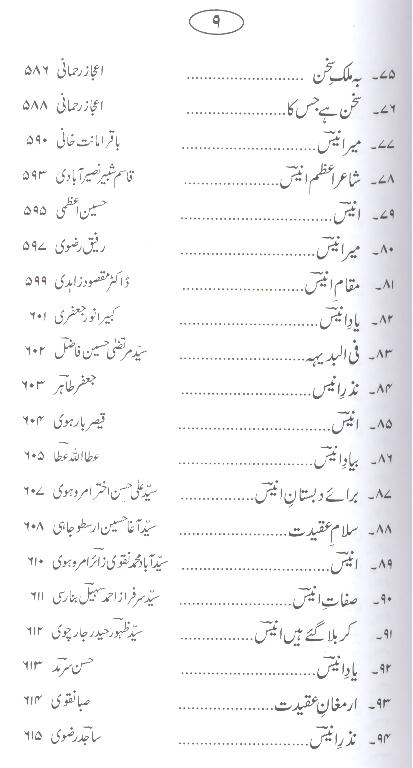 ۹
۷۵۔ بہ ملکِ سخن .......................... اعجاز رحمانی ۵۸۶
۷۶۔ سخن ہے جس کا...................... اعجاز رحمانی ۵۸۸
۷۷۔ میر انیسؔ............................ باقر امانت خانی ۵۹۰
۷۸۔ شاعر اعظم انیسؔ..................... قاسم شبیر نصیرآبادی ۵۹۳
۷۹۔ انیسؔ................................ حسین اعظمی ۵۹۵
۸۰۔ میر انیسؔ............................ رفیق رضوی ۵۹۷
۸۱۔ مقامِ انیسؔ........................... ڈاکٹر مقصود زاہدی ۵۹۹
۸۲۔ یادِ انیسؔ............................ کبیر انور جعفری ۶۰۱
۸۳۔ فی البدیہہ............................ سیّد مرتضیٰ حسین فاضلؔ ۶۰۲
۸۴۔ نذرِ انیس............................ جعفر طاہرؔ ۶۰۳
۸۵۔ انیسؔ................................ قیصر بارہوی ۶۰۴
۸۶۔ بیادِ انیسؔ........................... عطا اللہ عطاؔ ۶۰۵
۸۷۔ برائے دبستانِ انیسؔ................ سیّد علی حسن اختر امروہوی ۶۰۷
۸۸۔ سلامِ عقیدت...................... سیّد آغا حسین ارسطو جاہی ۶۰۸
۸۹۔ انیسؔ................................ سیّد آباد محمد نقوی زائرؔ امروہوی ۶۱۰
۹۰۔ صفاتِ انیسؔ......................... سیّد سرفراز احمد سہیلؔ بنارسی ۶۱۱
۹۱۔ کربلا گئے ہیں انیسؔ................. سیّد ظہور حیدر جارچوی ۶۱۲
۹۲۔ یادِ انیسؔ............................ حسن سرمدؔ ۶۱۳
۹۳۔ ارمغانِ عقیدت..................... صبا نقوی ۶۱۴
۹۴۔ نذرِ انیسؔ........................... ساجدؔ رضوی ۶۱۵